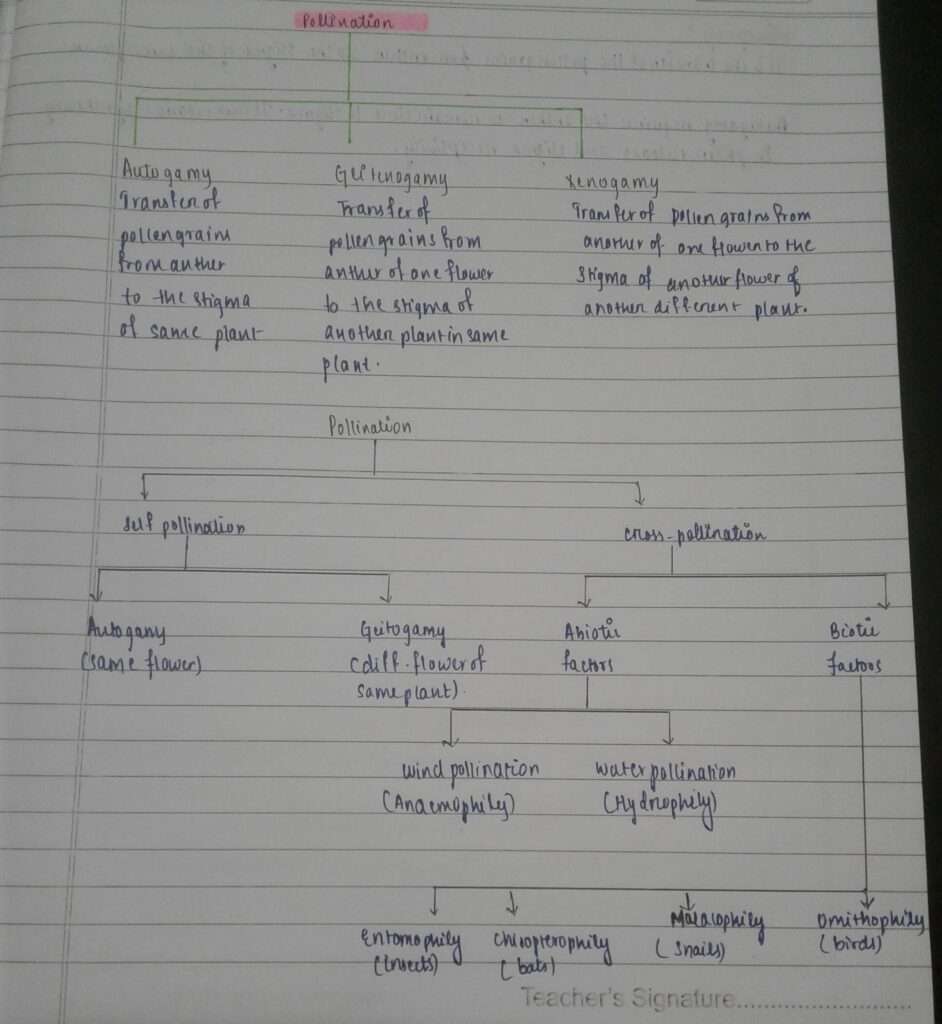 Pollination
Autogamy
Transfer of
pollen grains
from anther
to the stigma
of same plant
Geitenogamy
Transfer of
pollen grains from
anther of one flower
to the stigma of
another plant in same
plant.
Xenogamy
Transfer of pollen grains from
another of one flower to the
stigma of another flower of
another different plant.
Pollination
self pollination
cross-pollination
Autogany
(same flower)
Geitogamy
(diff. flower of
same plant).
Abiotic
factors
Biotic
factors
wind pollination
(Anaemophily)
water pollination
(Hydrophily)
Entomophily
(insects)
Chiropterophily
(bats)
Malacophily
(snails)
Ornithophily
(birds)
Teacher's Signature